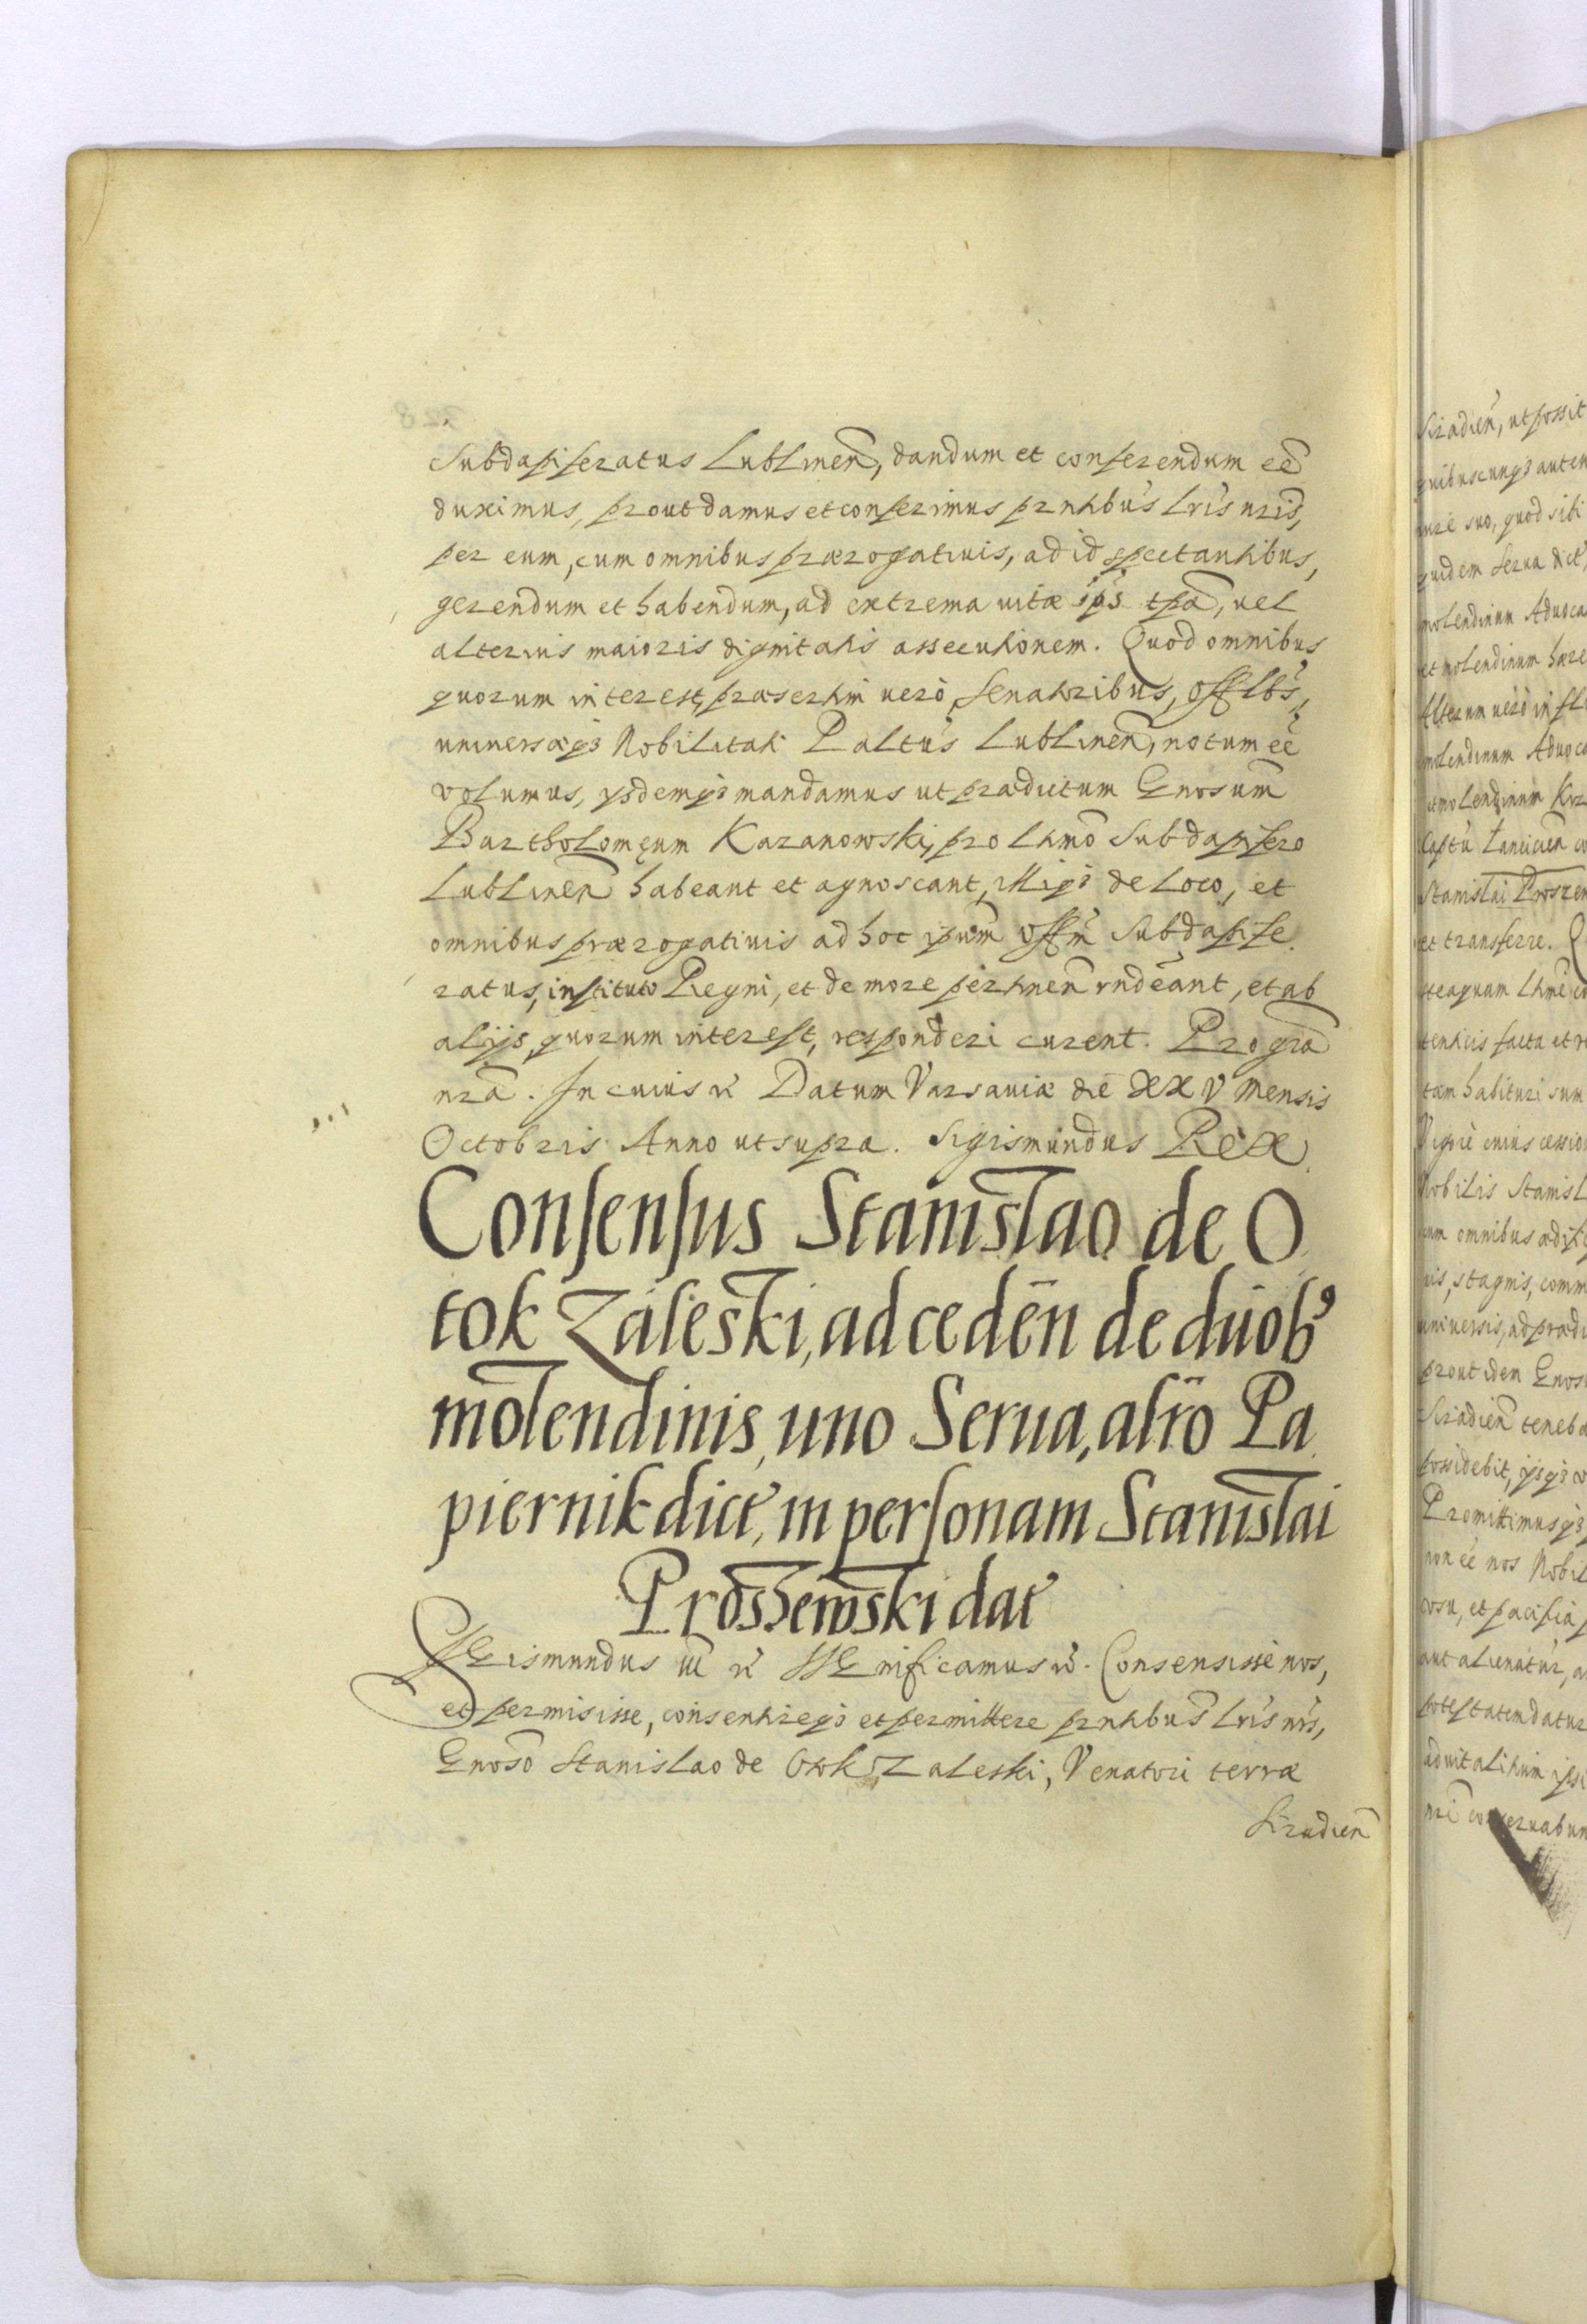 Subdapiferatus Lublinen̄, dandum et conferendum eē
duximus, prout damus et conferimus prntibūs lrīs nrīs,
per eum, cum omnibus prærogatiuis, ad id spectantibus,
gerendum et habendum, ad extrema uitæ ip̄s tpā, uel
alterius maioris dignitatis assecutionem. Quod omnibus
quorum interest, præsertim uerò Senatoribus, offlb̄s,
uniuersæq3 Nobilitati Paltūs Lublinen̄, notum eē
volumus, ysdemq3 mandamus ut prædictum Gnosum̄
Bartholomęum Kazanowski, pro ltimō Subdapifero
Lublinen̄ habeant et agnoscant, illiq3 de loco, et
omnibus prærogatiuis ad hoc ipsum̄ offm̄ Subdapife
ratus, instituto Regni, et de more pertinen̄ rndēant, et ab
alijs, quorum interest, responderi curent. Pro grā
nrā. In cuius rē Datum Varsauiæ diē XXV Mensis
Octobris Anno ut supra. Sigismundus Rex
Consensus Stanislao de O
tok Zaleski, ad ceden̄ de duob9
molendinis, uno Serua, altrō Pa
piernik dict, in personam Stanislai
Proszewski dat
Sigismundus III rē Significamus rē. Consensisse nos,
et permisisse, consentireq3 et permittere prntibūs lrīs nrīs,
Gnosō Stanislao de Otok Zaleski, Venatori terræ
Siradien̄
Siradien̄, ut possit
quibuscunq3 auten
iure suo, quod sibi
quidem Serua dict
molendinum Aduoca
et molendinum hære
Alterum uerò in flu
molendinum Aduoca
Stanislai Proszew
et transferre.
tam habituri sum
Nobilis Stanisl
cum omnibus
uis, stagnis, comm
uniuersis, ad prædi
prout idem Gnos
Siradien̄ teneba
possidebit, ijsq3
Promittimusq3
non eē nos Nobil
usu, et pacifica p
aut alienatur, a
potestatem datur